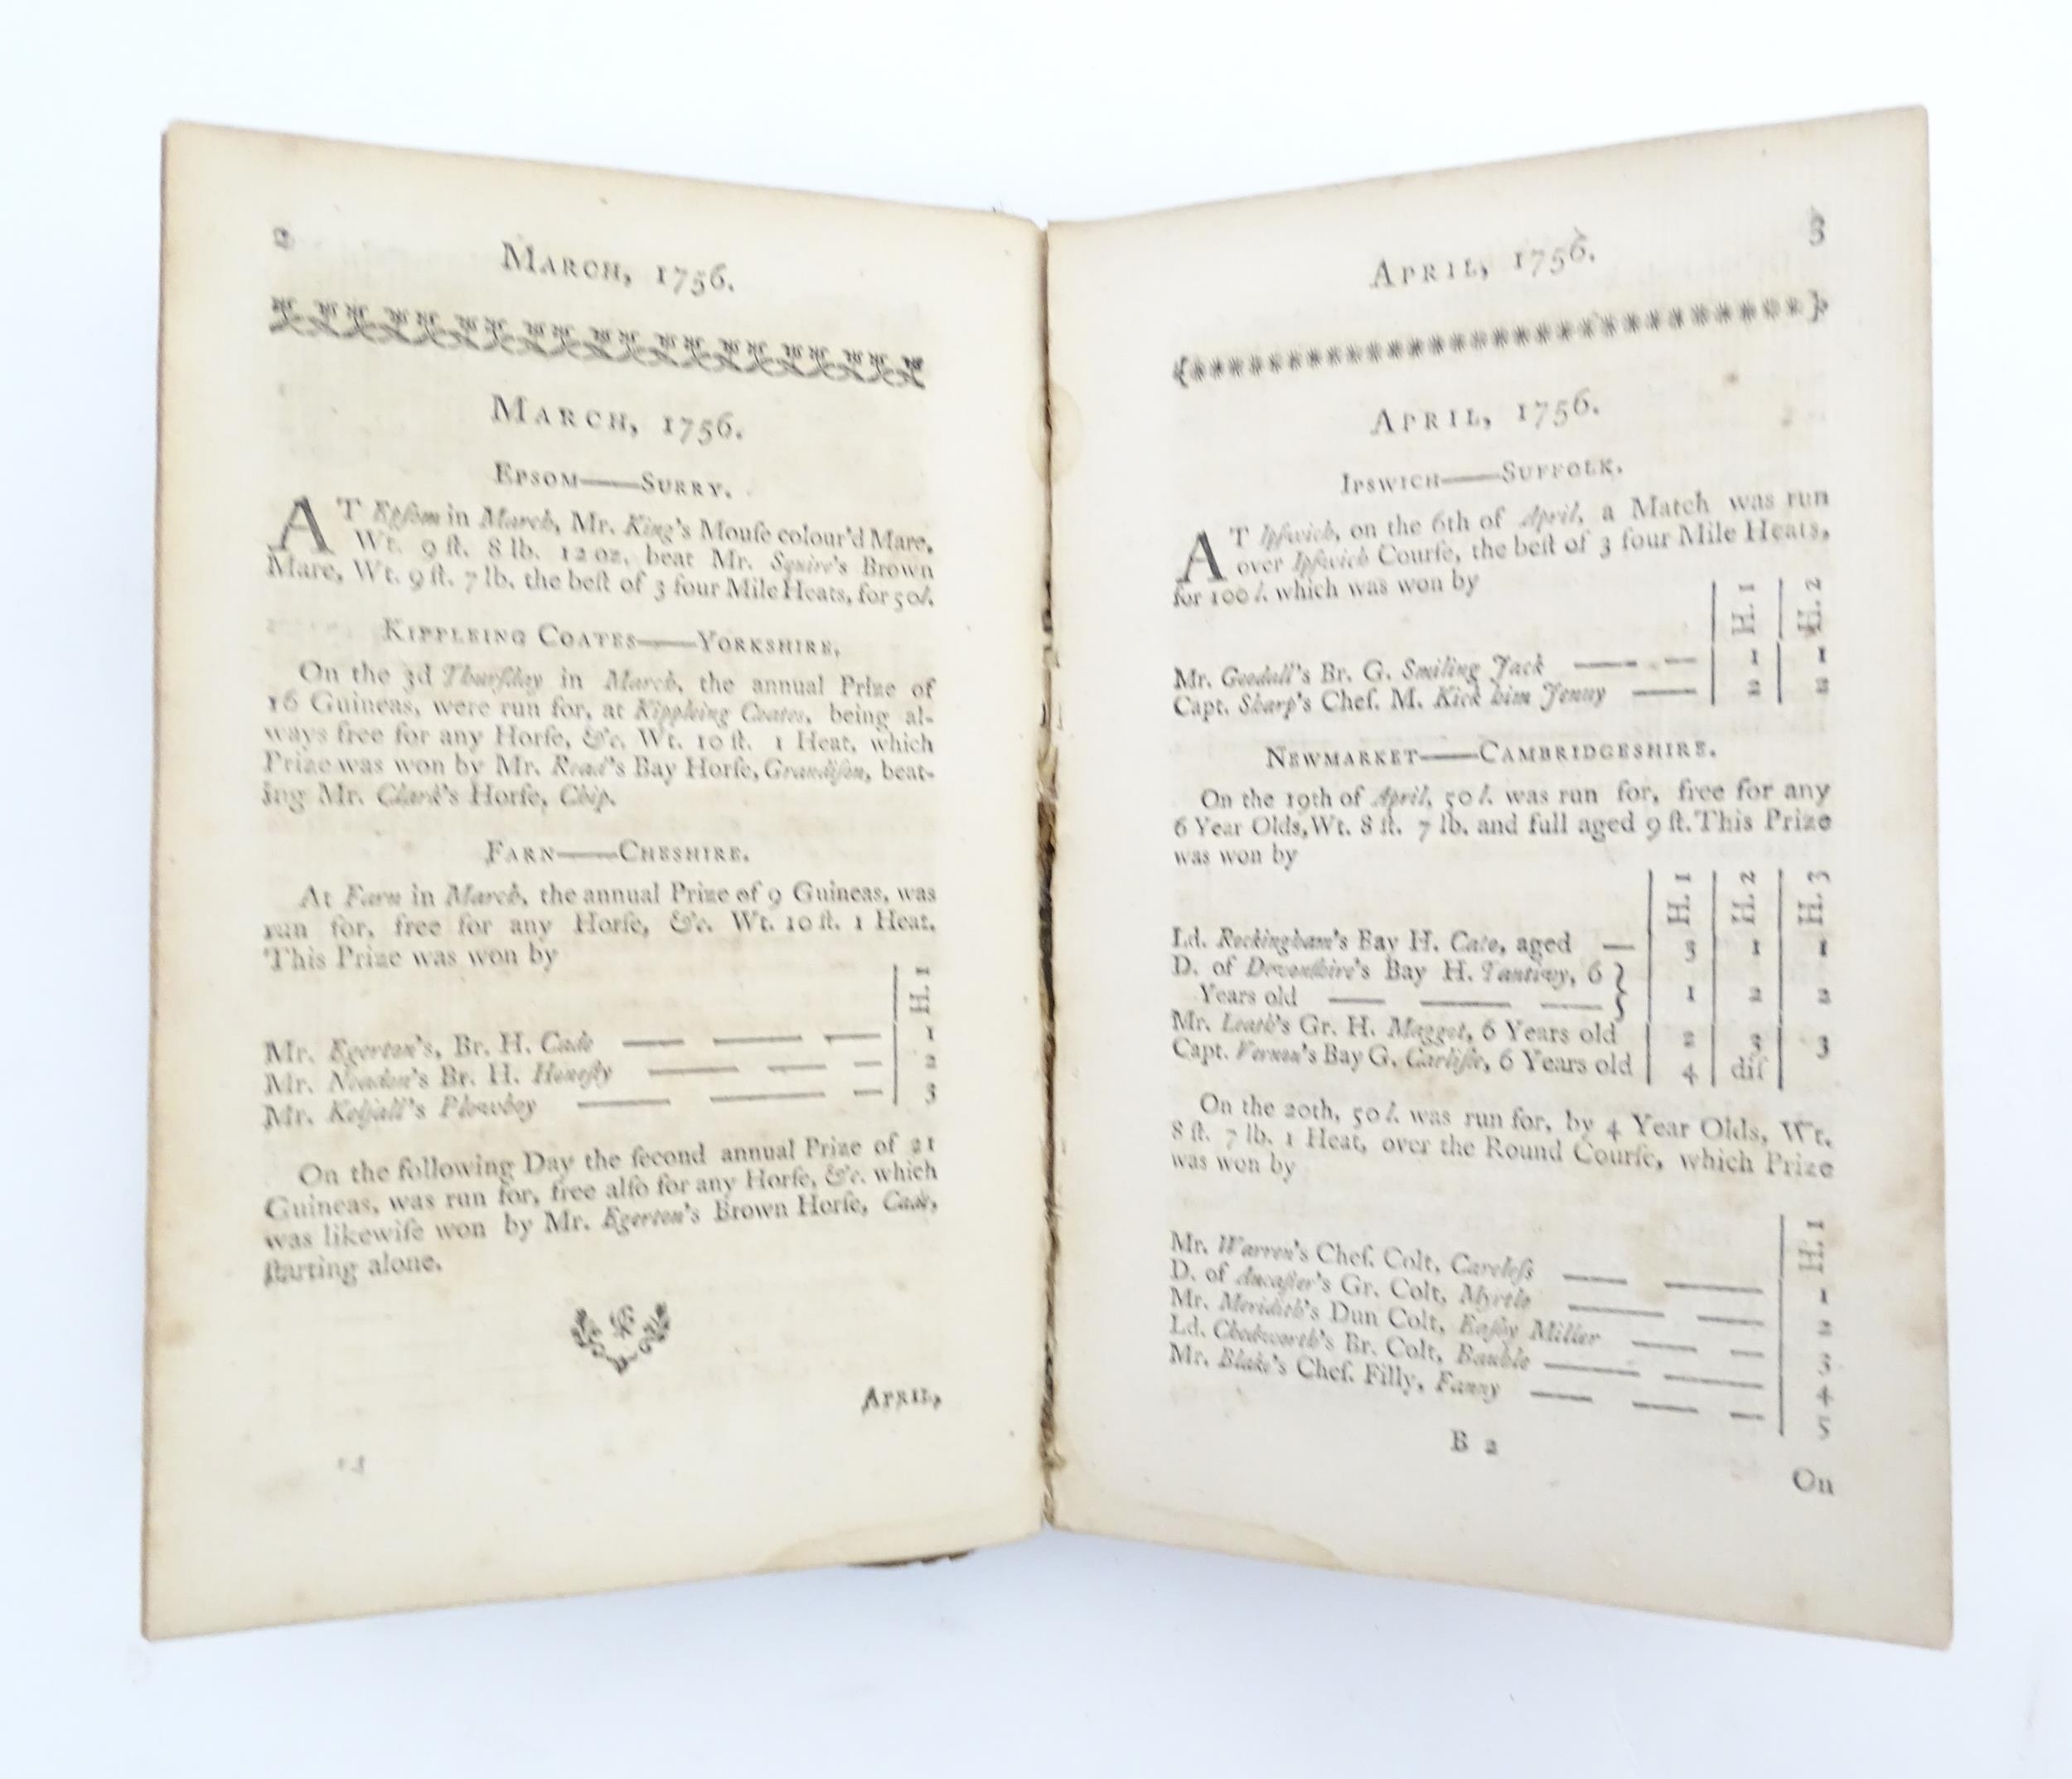 2
MARCH, 1756.
MARCH, 1756.
EPSOM——SURRY.
AT Epſom in March, Mr. King's Mouſe colour'd Mare,
Wt. 9 ſt. 8 lb. 12 oz. beat Mr. Squire's Brown
Mare, Wt. 9 ſt. 7 lb. the beſt of 3 four Mile Heats, for 50l.
KIPPLEING COATES——YORKSHIRE.
On the 3d Thurſday in March, the annual Prize of
16 Guineas, were run for, at Kippleing Coates, being al-
ways free for any Horſe, &c. Wt. 10 ſt. 1 Heat, which
Prize was won by Mr. Read's Bay Horſe, Grandiſon, beat-
ing Mr. Clark's Horſe, Chip.
FARN——CHESHIRE.
At Farn in March, the annual Prize of 9 Guineas, was
run for, free for any Horſe, &c. Wt. 10 ſt. 1 Heat.
This Prize was won by
H. 1
Mr. Egerton's, Br. H. Cade — — — 1
Mr. Br. H. Honeſty — — — 2
Mr. Plowboy — — — 3
On the following Day the ſecond annual Prize of 21
Guineas, was run for, free alſo for any Horſe, &c. which
was likewiſe won by Mr. Egerton's Brown Horſe, Cade,
ſtarting alone.
APRIL,
APRIL, 1756.
3
APRIL, 1756.
IPSWICH——SUFFOLK.
AT Ipſwich, on the 6th of April, a Match was run
over Ipſwich Courſe, the beſt of 3 four Mile Heats,
for 100 l. which was won by
H. 1 H. 2
Mr. Goodall's Br. G. Smiling Jack — — 1 1
Capt. Sharp's Cheſ. M. Kick him Jenny — 2 2
NEWMARKET——CAMBRIDGESHIRE.
On the 19th of April, 50 l. was run for, free for any
6 Year Olds, Wt. 8 ſt. 7 lb. and full aged 9 ſt. This Prize
was won by
H. 1 H. 2 H. 3
Ld. Rockingham's Bay H. Cato, aged — 3 1 1
D. of Devonſhire's Bay H. Tantivy, 6 }
Years old — — — } 1 2 2
Mr. Leath's Gr. H. Maggot, 6 Years old 2 3 3
Capt. Vernon's Bay G. Carliſle, 6 Years old 4 diſ
On the 20th, 50 l. was run for, by 4 Year Olds, Wt.
8 ſt. 7 lb. 1 Heat, over the Round Courſe, which Prize
was won by
H. 1
Mr. Warren's Cheſ. Colt, Careleſs — — 1
D. of Ancaſter's Gr. Colt, Myrtle — — 2
Mr. Meridith's Dun Colt, Eaſby Miller — — 3
Ld. Chedworth's Br. Colt, Bauble — — 4
Mr. Blake's Cheſ. Filly, Fanny — — — 5
B 2
On